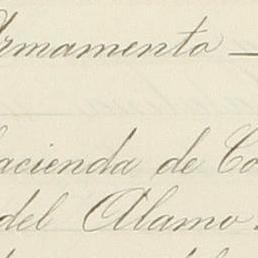 Armamento —
hacienda de Co
del Alamo.